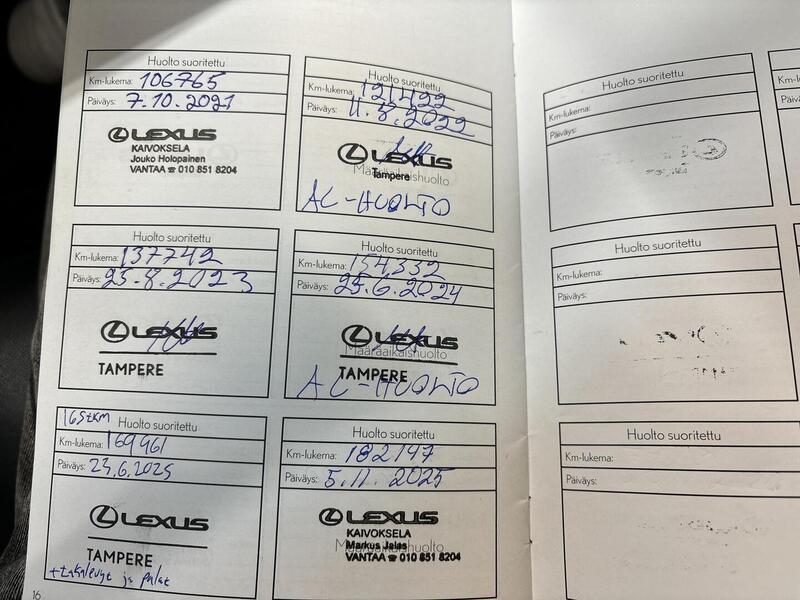 Huolto suoritettu
Km-lukema: 106765
Päiväys: 7.10.2021
LEXUS
KAIVOKSELA
Jouko Holopainen
VANTAA ☎ 010 851 8204
Huolto suoritettu
Km-lukema: 121422
Päiväys: 11.8.2022
LEXUS
Tampere
Määräaikaishuolto
AC-HUOLTO
Huolto suoritettu
Km-lukema: 137742
Päiväys: 25.8.2023
LEXUS
TAMPERE
Huolto suoritettu
Km-lukema: 154332
Päiväys: 25.6.2024
LEXUS
Määräaikaishuolto
TAMPERE
AC-HUOLTO
165tkm
Huolto suoritettu
Km-lukema: 169961
Päiväys: 23.6.2025
LEXUS
TAMPERE
+takalevyt ja palat
Huolto suoritettu
Km-lukema: 182147
Päiväys: 5.11.2025
LEXUS
KAIVOKSELA
Markus Jalas
Määräaikaishuolto
VANTAA ☎ 010 851 8204
16
Huolto suoritettu
Km-lukema:
Päiväys:
Huolto suoritettu
Km-lukema:
Päiväys:
Huolto suoritettu
Km-lukema:
Päiväys: